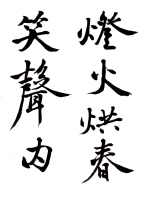 燈火烘春
笑聲內